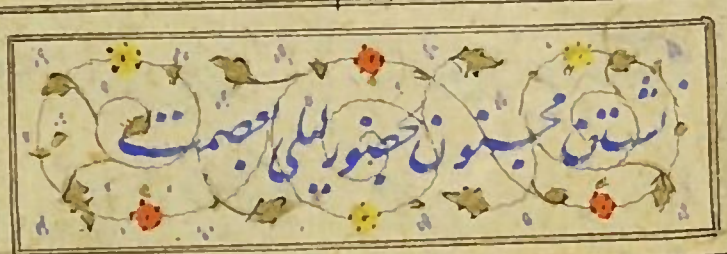 نشستن مجنون بحضور لیلی بعصمت